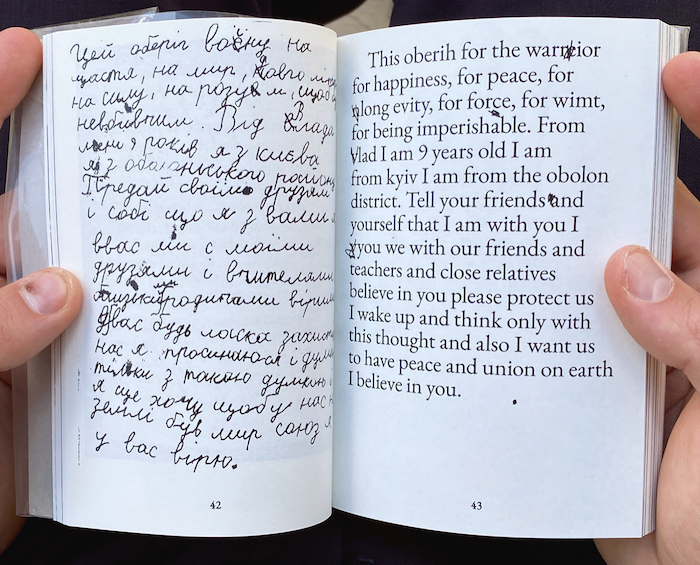 Цей оберіг воєну на
щастя, на мир, довго
на силу, на розум, щоб
невбивчим. Від Влада
мені 9 років я з києва
я з оболонського
Передай своїм друзям
і собі що я з вами я
ввас ми с моїми
друзями і вчителями
близькіми родинами вірим
двас будь ласка
нас я просинаюся і
тільки з такою думкою
я ще хочу щоб у нас на
землі був мир союз я
у вас вірю.
42
This oberih for the warreior
for happiness, for peace, for
along evity, for force, for wimt,
for being imperishable. From
vlad I am 9 years old I am
from kyiv I am from the obolon
district. Tell your friends and
yourself that I am with you I
you we with our friends and
teachers and close relatives
believe in you please protect us
I wake up and think only with
this thought and also I want us
to have peace and union on earth
I believe in you.
43